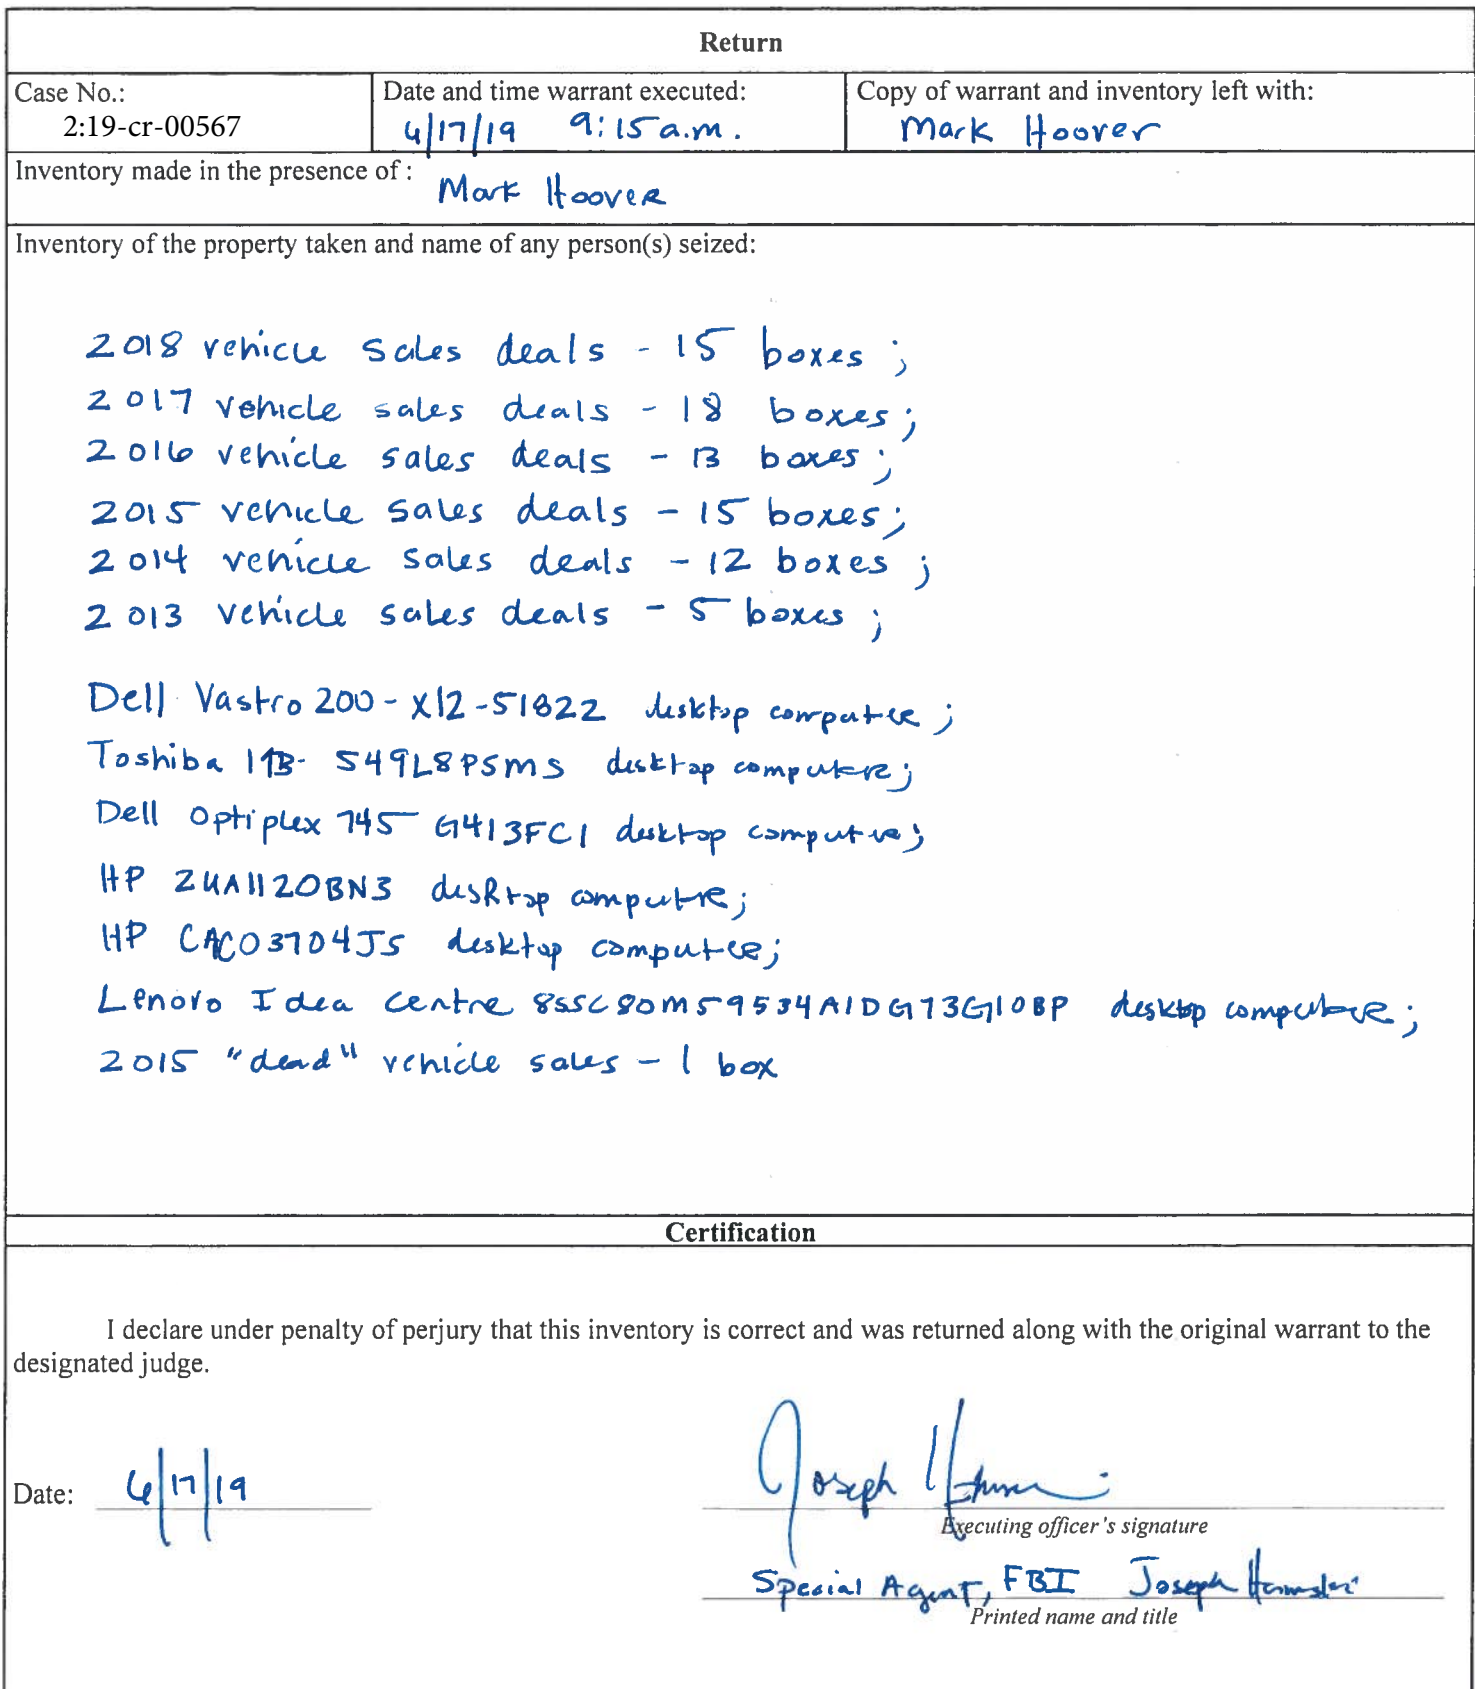 Return
Case No.:
2:19-cr-00567
Date and time warrant executed:
6/17/19 9:15 a.m.
Copy of warrant and inventory left with:
Mark Hoover
Inventory made in the presence of :
Mark Hoover
Inventory of the property taken and name of any person(s) seized:
2018 vehicle sales deals - 15 boxes;
2017 vehicle sales deals - 18 boxes;
2016 vehicle sales deals - 13 boxes;
2015 vehicle sales deals - 15 boxes;
2014 vehicle sales deals - 12 boxes;
2013 vehicle sales deals - 5 boxes;
Dell Vastro 200 - X12-51822 desktop computer;
Toshiba 549L8PSMS desktop computer;
Dell Optiplex 745 G413FC1 desktop computer;
HP 2UA1120BN3 desktop computer;
HP CAC03704JS desktop computer;
Lenovo Idea Centre 8SSC80M59534A1DG73G10BP desktop computer;
2015 "dead" vehicle sales - 1 box
Certification
I declare under penalty of perjury that this inventory is correct and was returned along with the original warrant to the
designated judge.
Date: 6/17/19
Joseph
Executing officer's signature
Special Agent, FBI Joseph
Printed name and title